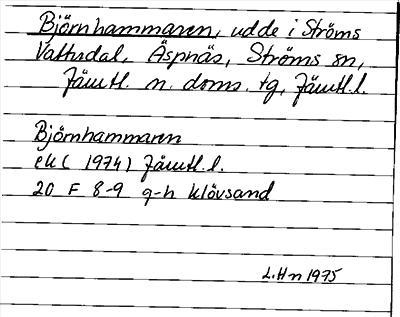 Björnhammaren, udde i Ströms
Vattudal, Äspnäs, Ströms sn,
Jämtl. n. doms. tg, Jämtl. l.
Björnhammaren
ek ( 1974) Jämtl. l.
20 F 8-9 g-h Klövsand
L.Hn 1975